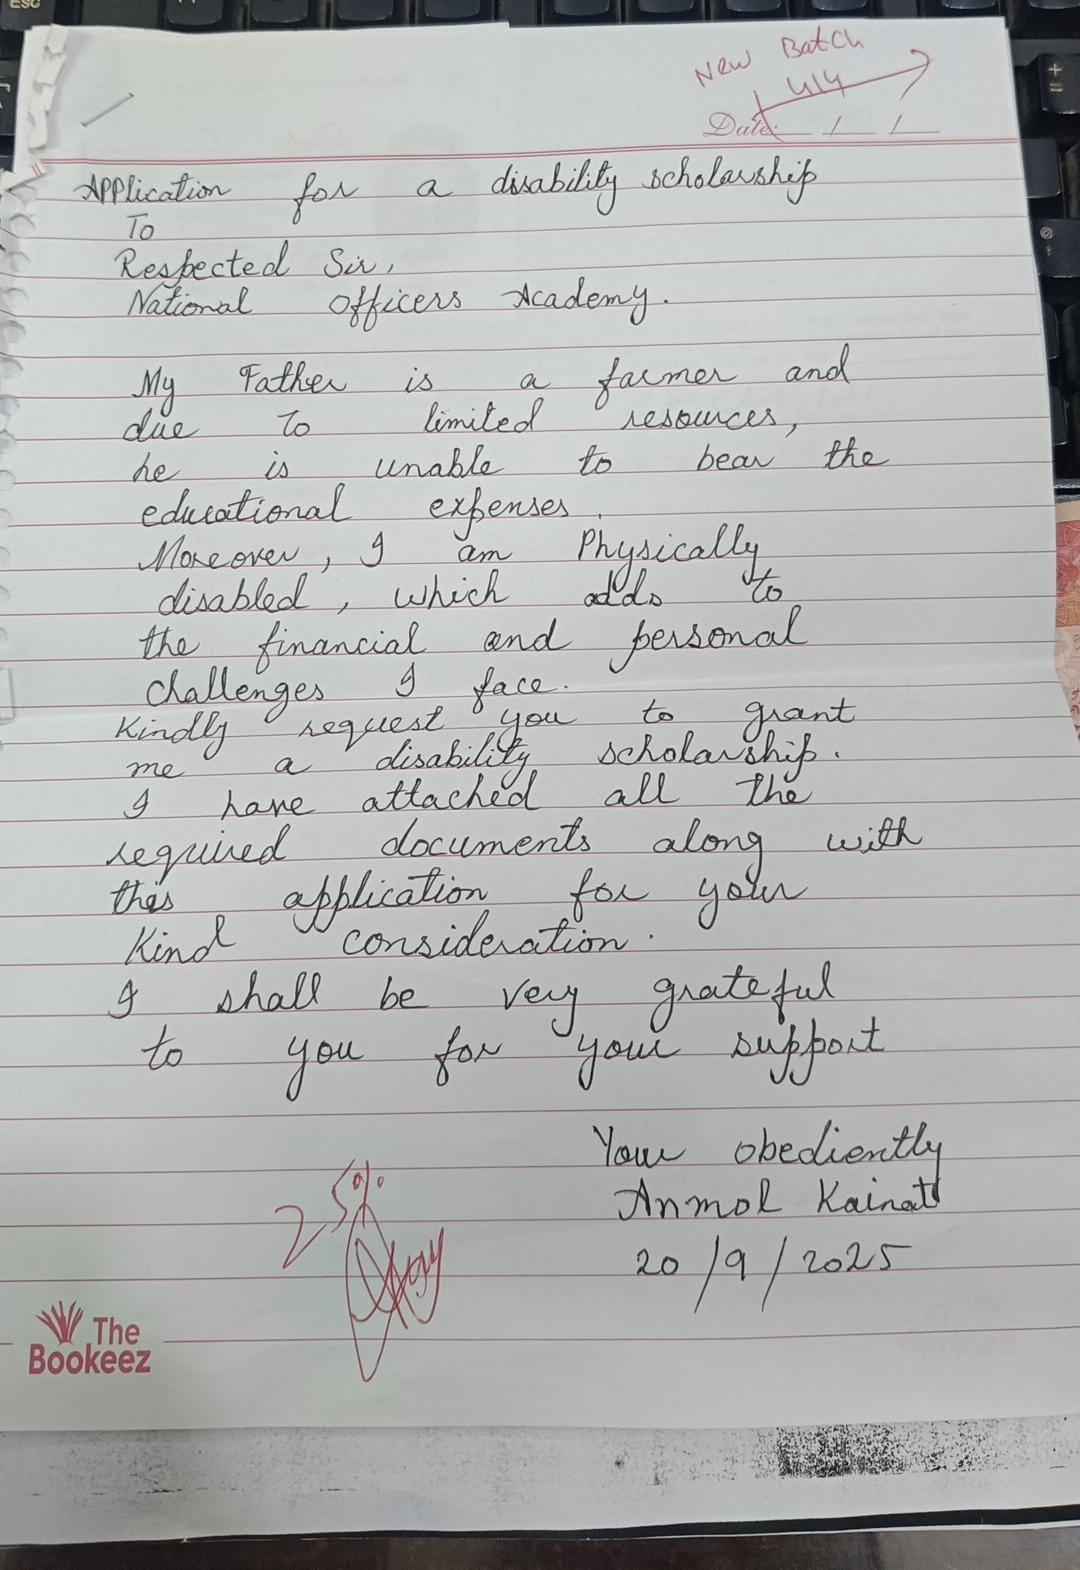 ESC
New Batch
414
Date: / /
Application for a disability scholarship
To
Respected Sir,
National Officers Academy.
My Father is a farmer and
due to limited resources,
he is unable to bear the
educational expenses.
Moreover, I am Physically
disabled, which adds to
the financial and personal
challenges I face.
Kindly request you to grant
me a disability scholarship.
I have attached all the
required documents along with
this application for your
Kind consideration.
I shall be very grateful
to you for your support
Your obediently
Anmol Kainat
20/9/2025
25%
The
Bookeez